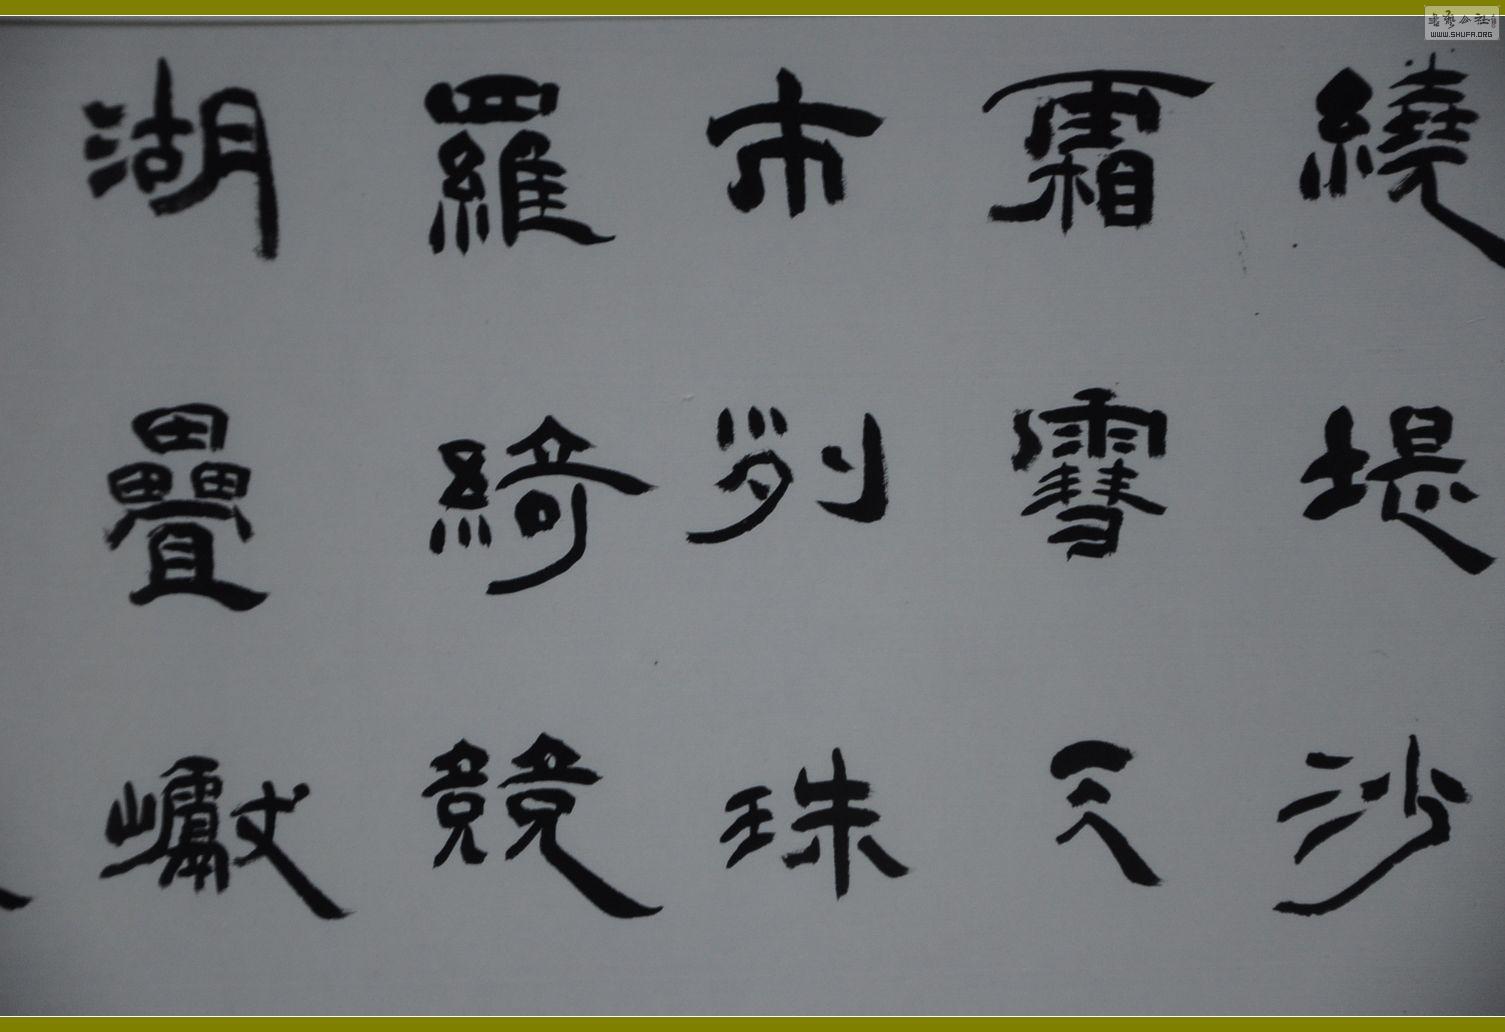 繞堤沙
霜䨮天
市列珠
羅綺競
湖疊巘
书艺公社
WWW.SHUFA.ORG